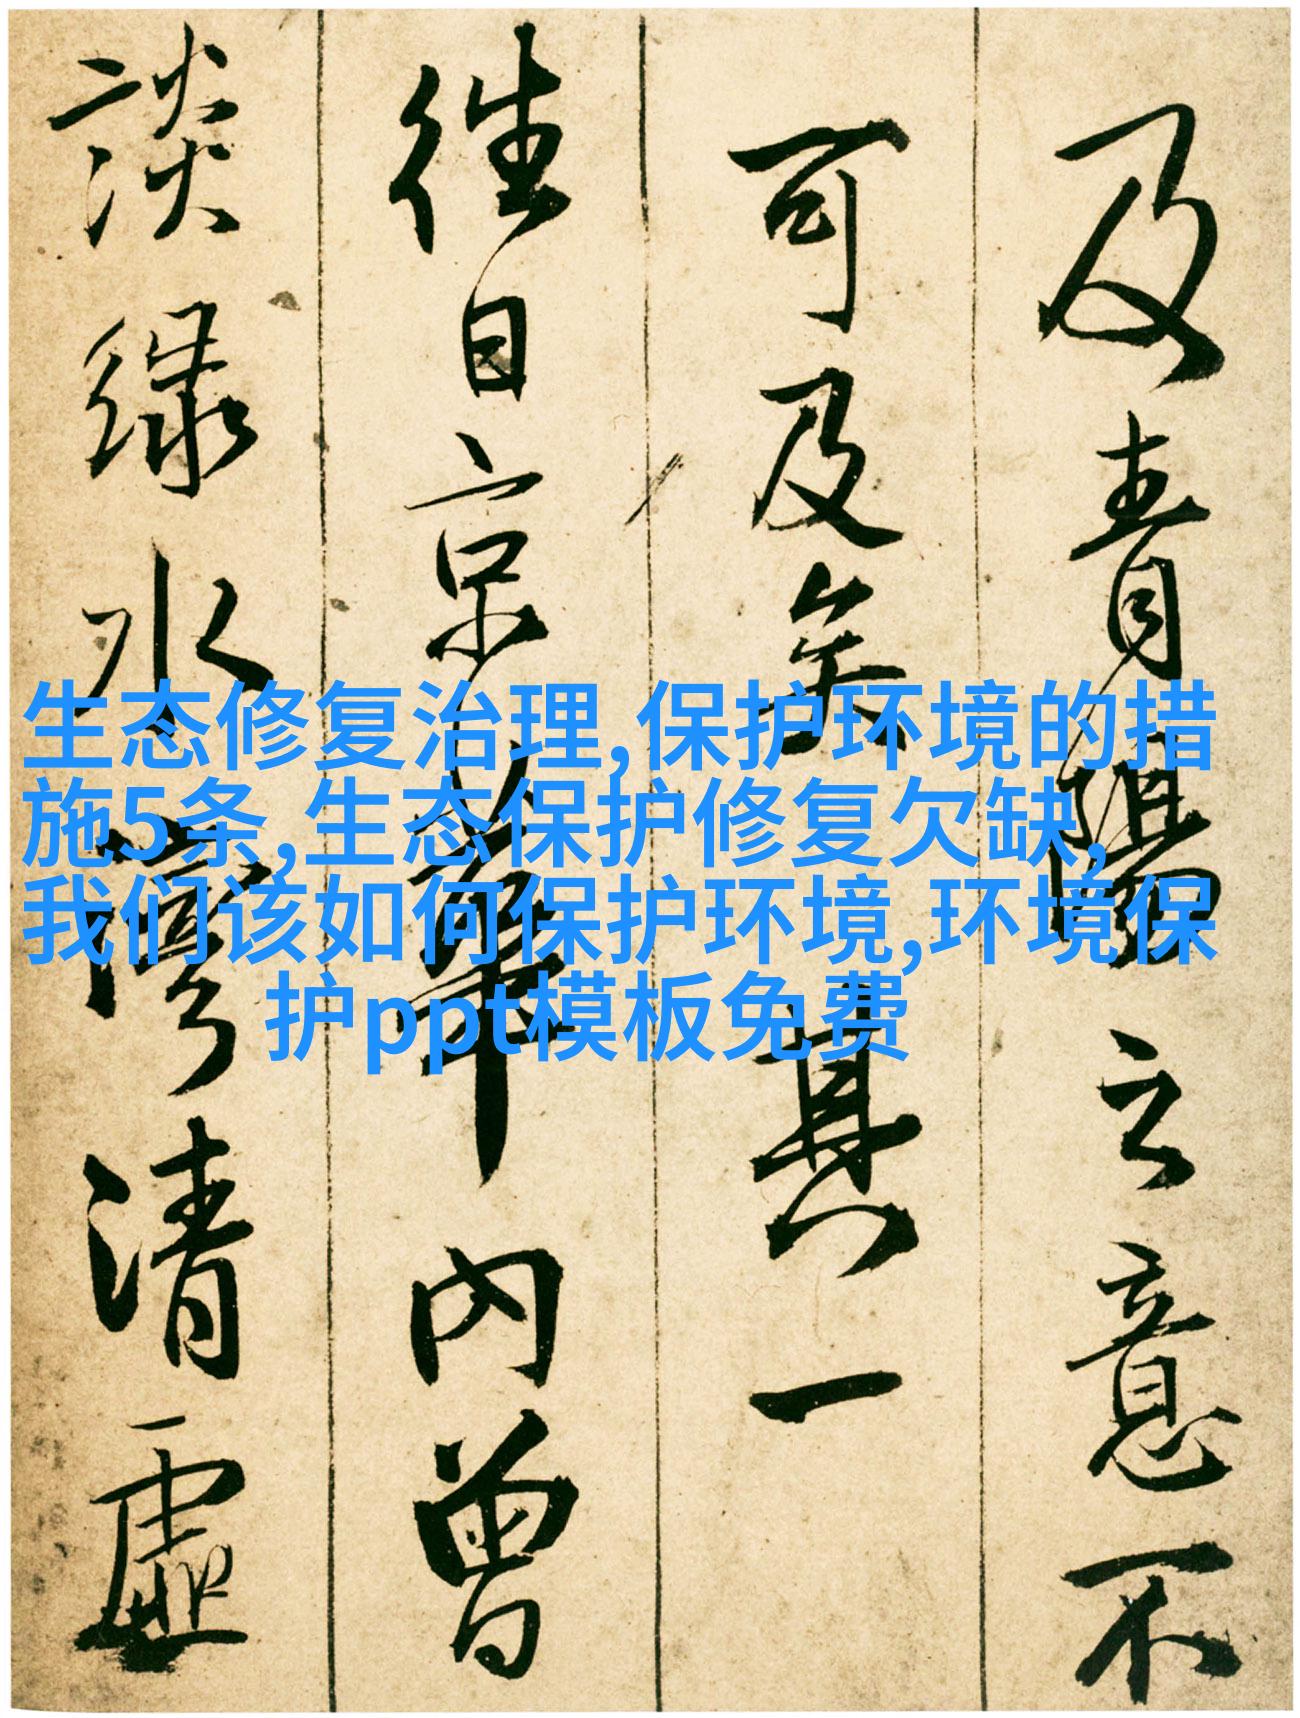 及青陽意不
可及矣其一
往日京華内曾
談綠水灣清虛
生态修复治理,保护环境的措
施5条,生态保护修复欠缺,
我们该如何保护环境,环境保
护ppt模板免费